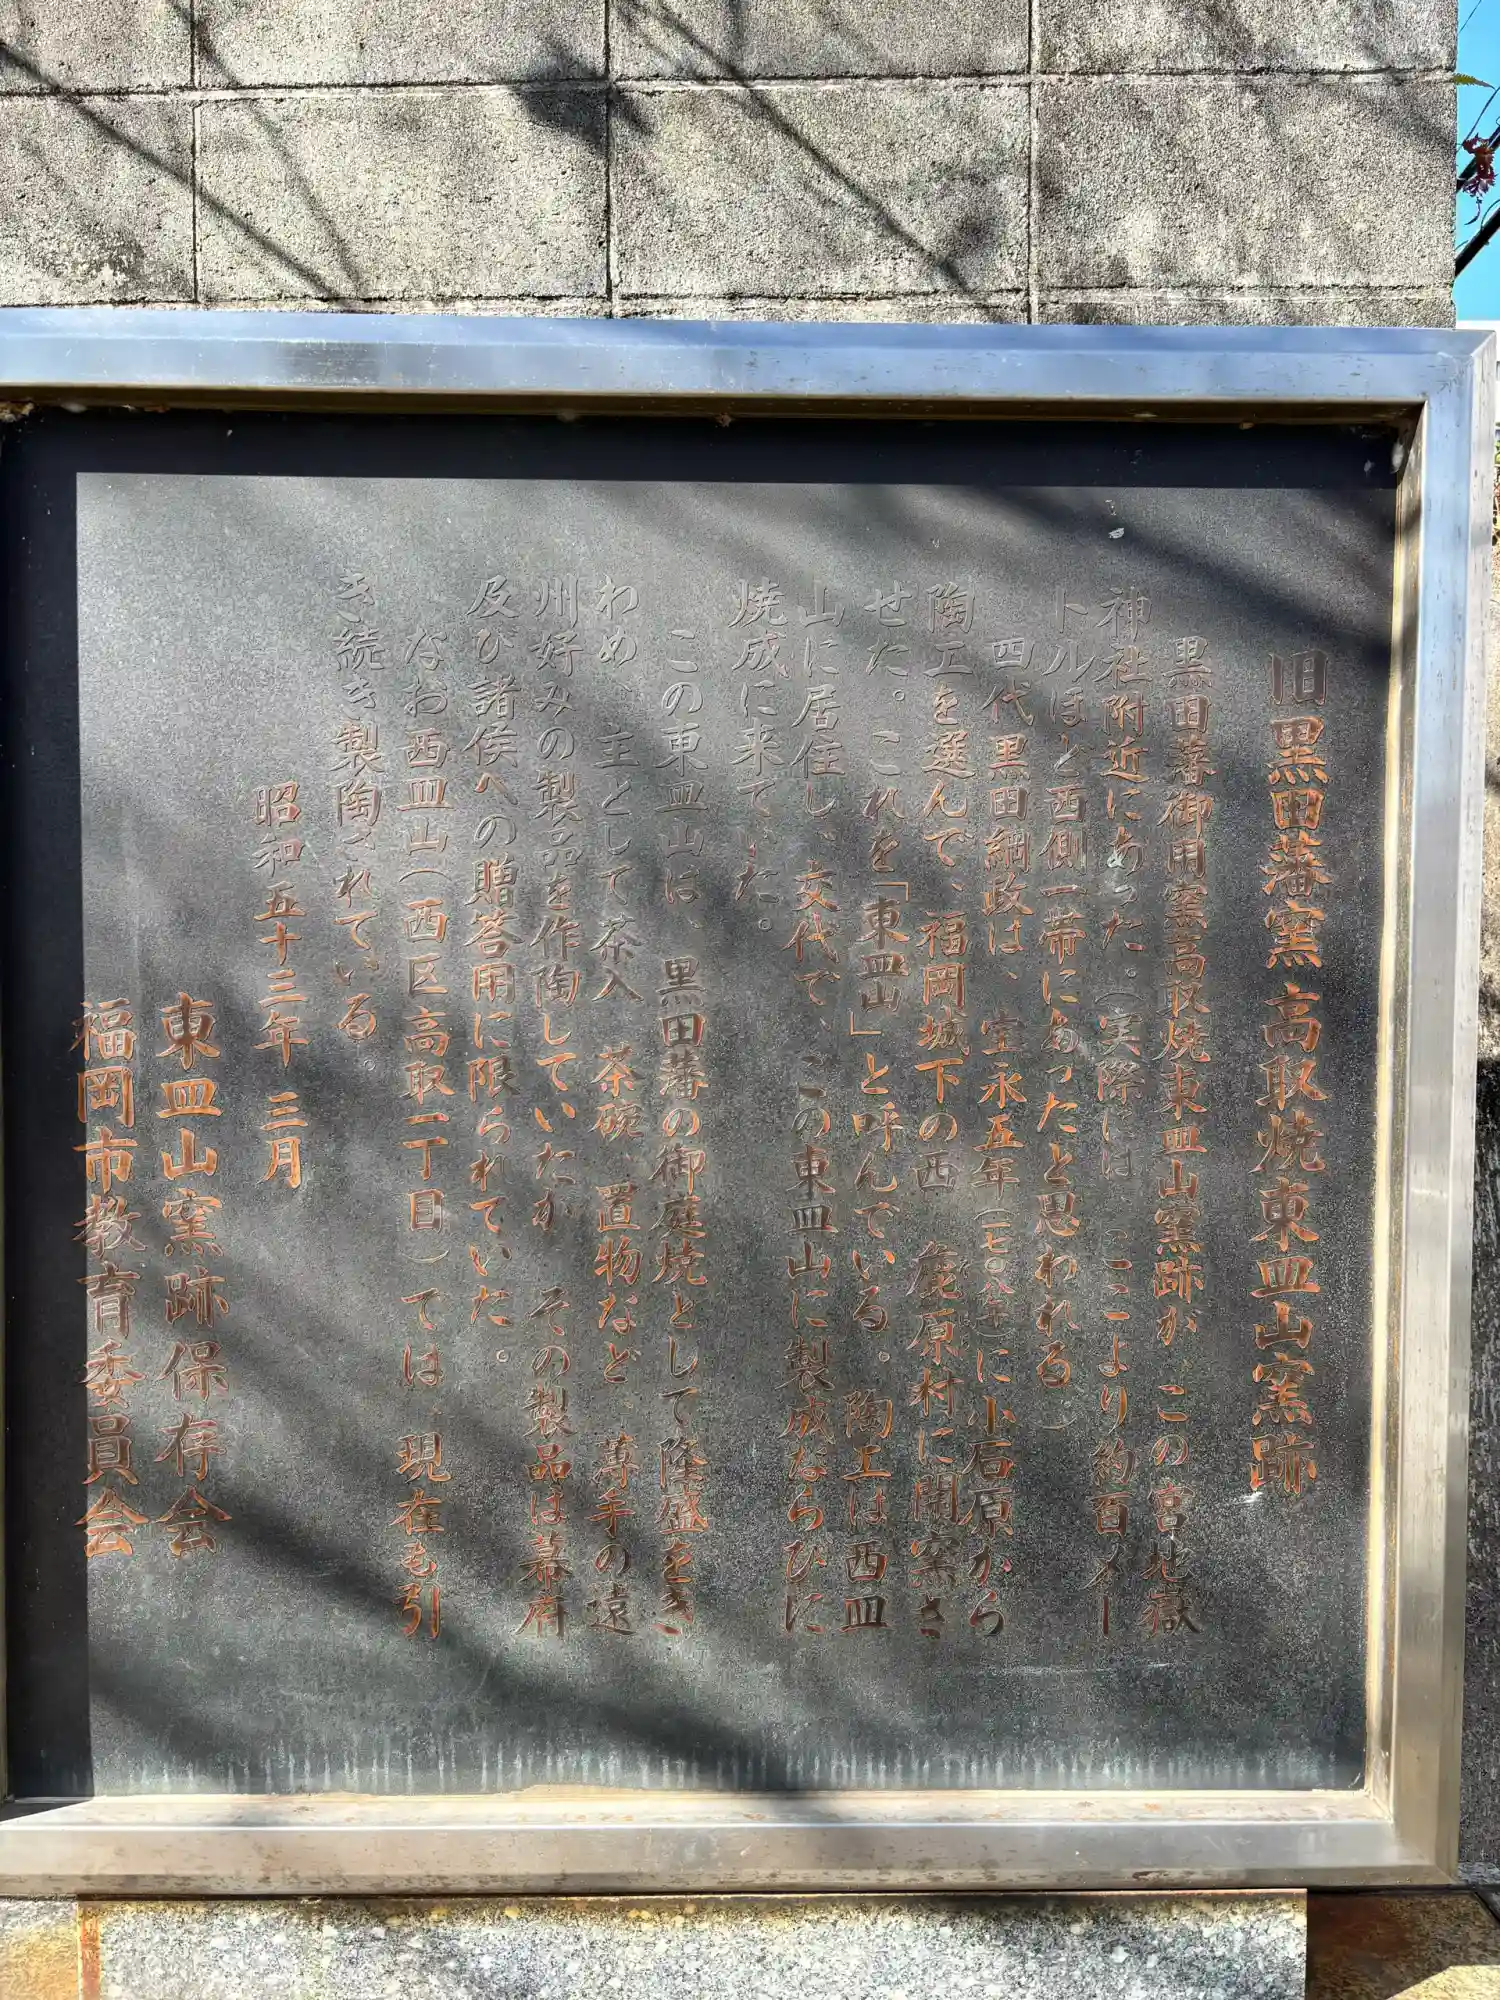 旧黒田藩窯 高取焼東皿山窯跡
黒田藩御用窯高取焼東皿山窯跡が、この宮地嶽
神社附近にあった。（実際には、ここより約百メー
トルほど西側一帯にあったと思われる）
四代黒田綱政は、宝永五年（一七〇八年）に小石原から
陶工を選んで、福岡城下の西 麁原村に開窯さ
せた。これを「東皿山」と呼んでいる。陶工は西皿
山に居住し、交代で、この東皿山に製成ならびに
焼成に来ていた。
この東皿山は、黒田藩の御庭焼として隆盛をき
わめ、主として茶入、茶碗、置物など、薄手の遠
州好みの製品を作陶していたが、その製品は幕府
及び諸侯への贈答用に限られていた。
なお西皿山（西区高取一丁目）ては、現在も引
き続き製陶されている。
昭和五十三年 三月
東皿山窯跡保存会
福岡市教育委員会